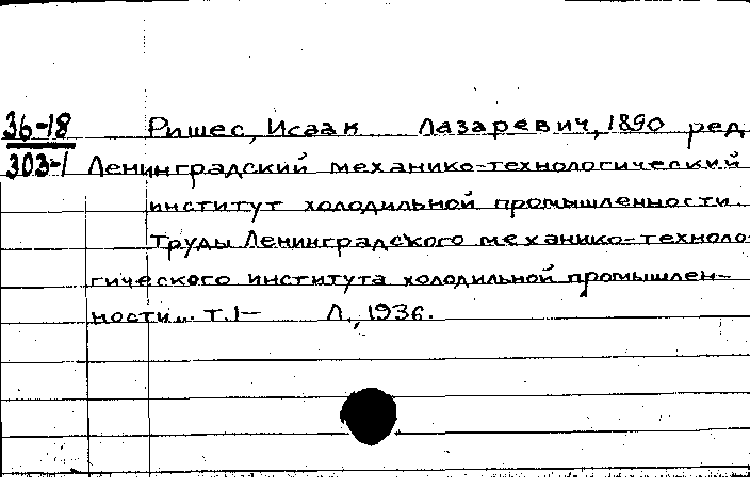 36-18 Ришес, Исаак Лазаревич, 1890 ред.
303-1 Ленинградский механико-технологический
институт холодильной промышленности.
Труды Ленинградского механико-техноло-
гического института холодильной промышлен-
ности... т.1- Л., 1936.